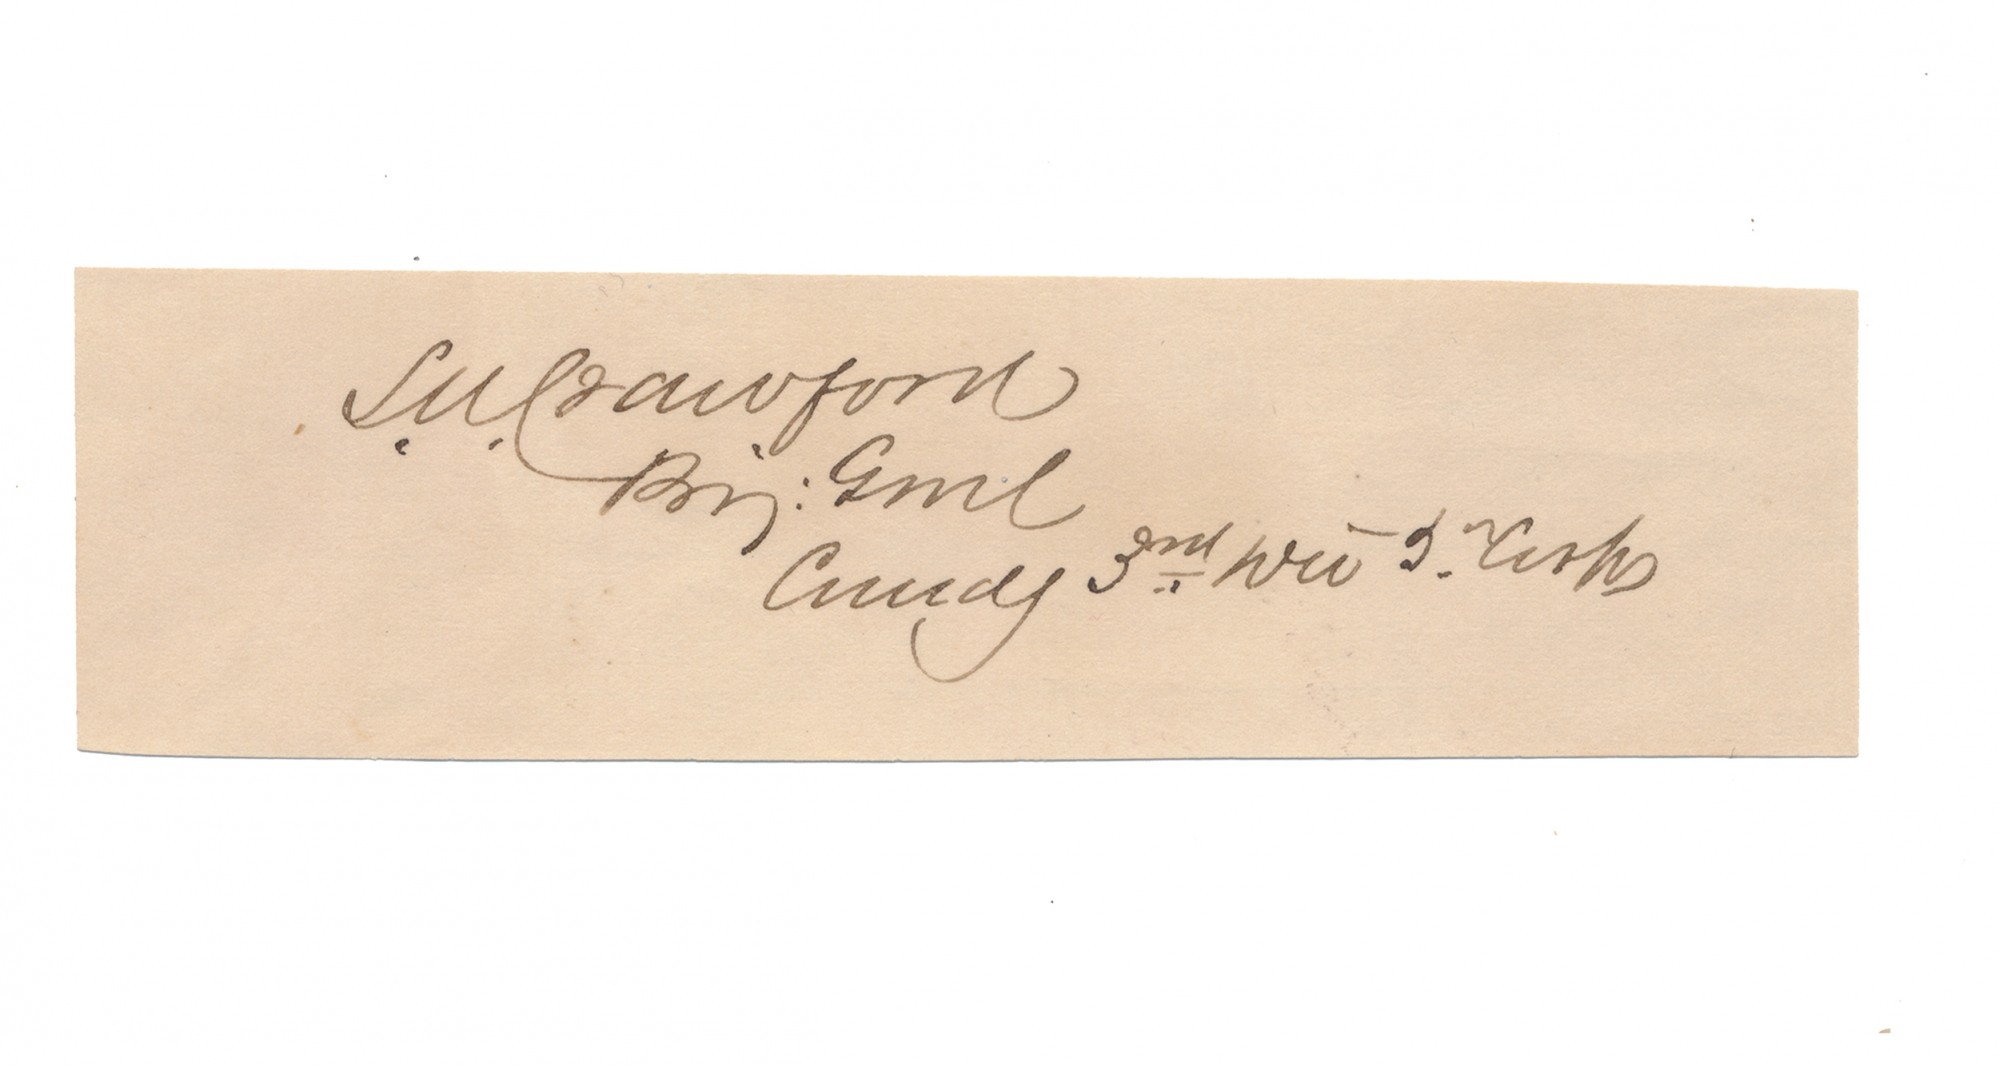 S.W. Crawford
Brig: Genl
Comdg 3rd Div 5. Corps